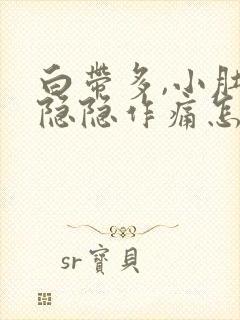 白带多,小肚
隐隐作痛怎
sr寶貝